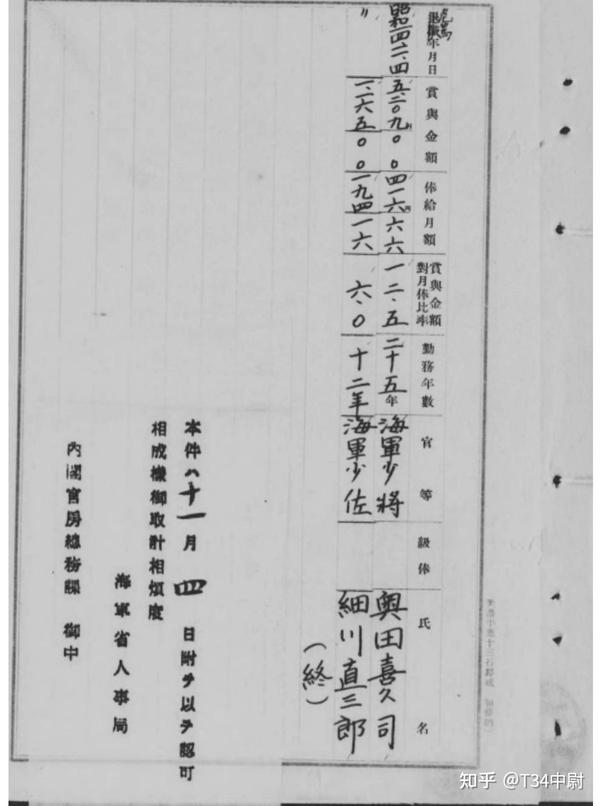 年月日 賞與金額 俸給月額 賞與金額對月俸比率 勤務年數 官等 級俸 氏名
昭和一四一一、四 五、二〇九〇〇 四一六六六 一二、五 二十五年 海軍少將 奥田喜久司
〃 一、一六五〇〇 一九四一六 六、〇 十二年 海軍少佐 細川直三郎
(終)
本件ハ十一月四日附ヲ以テ認可
相成樣御取計相煩度
海軍省人事局
內閣官房總務課 御中
知乎 @T34中尉